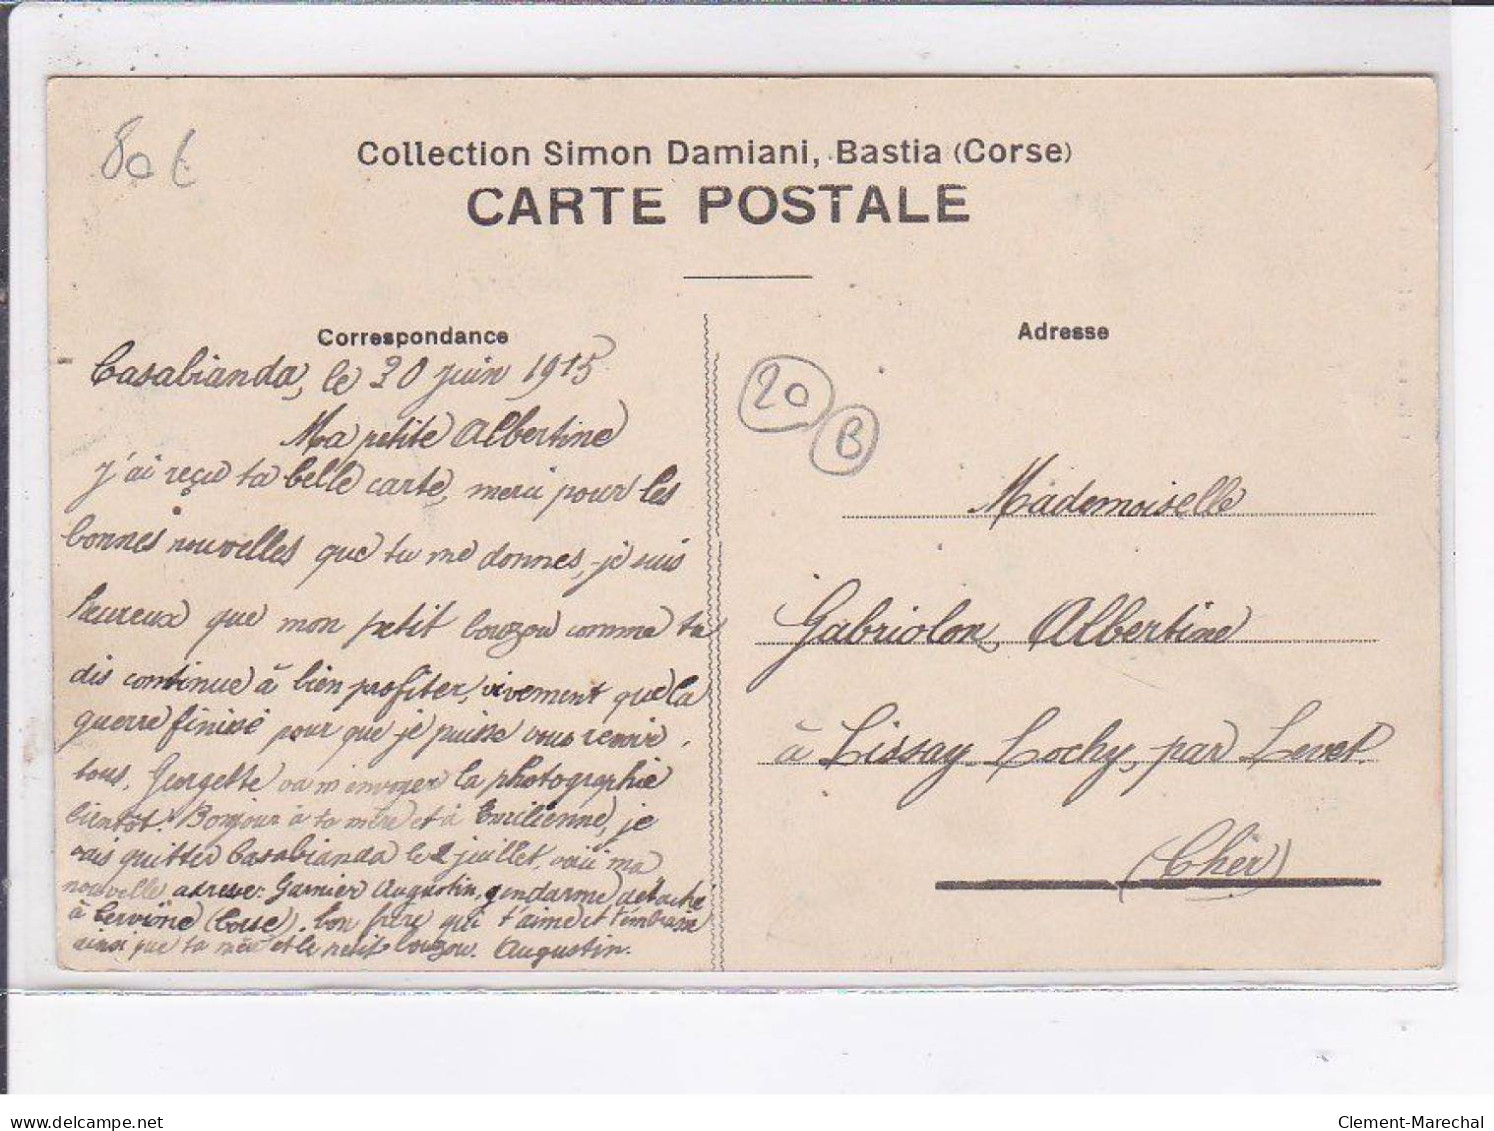 80 €
Collection Simon Damiani, Bastia (Corse)
CARTE POSTALE
Correspondance
Casabianda, le 30 juin 1915
Ma petite Albertine
j'ai reçu ta belle carte, merci pour les
bonnes nouvelles que tu me donnes, je suis
heureux que mon petit louzou comme tu
dis continue à bien profiter, vivement que la
guerre finisse pour que je puisse vous revoir
tous, Georgette va m'envoyer la photographie
bientôt. Bonjour à ta mère et à Emilienne, je
vais quitter Casabianda le 2 juillet, voici ma
nouvelle adresse: Garnier Augustin, gendarme détaché
à Cervione (Corse). ton frère qui t'aime et t'embrasse
ainsi que ta mère et le petit louzou. Augustin.
Adresse
20
B
Mademoiselle
Gabriolon, Albertine
à Lissay Lochy, par Levet
(Cher)
delcampe.net
Clement-Marechal